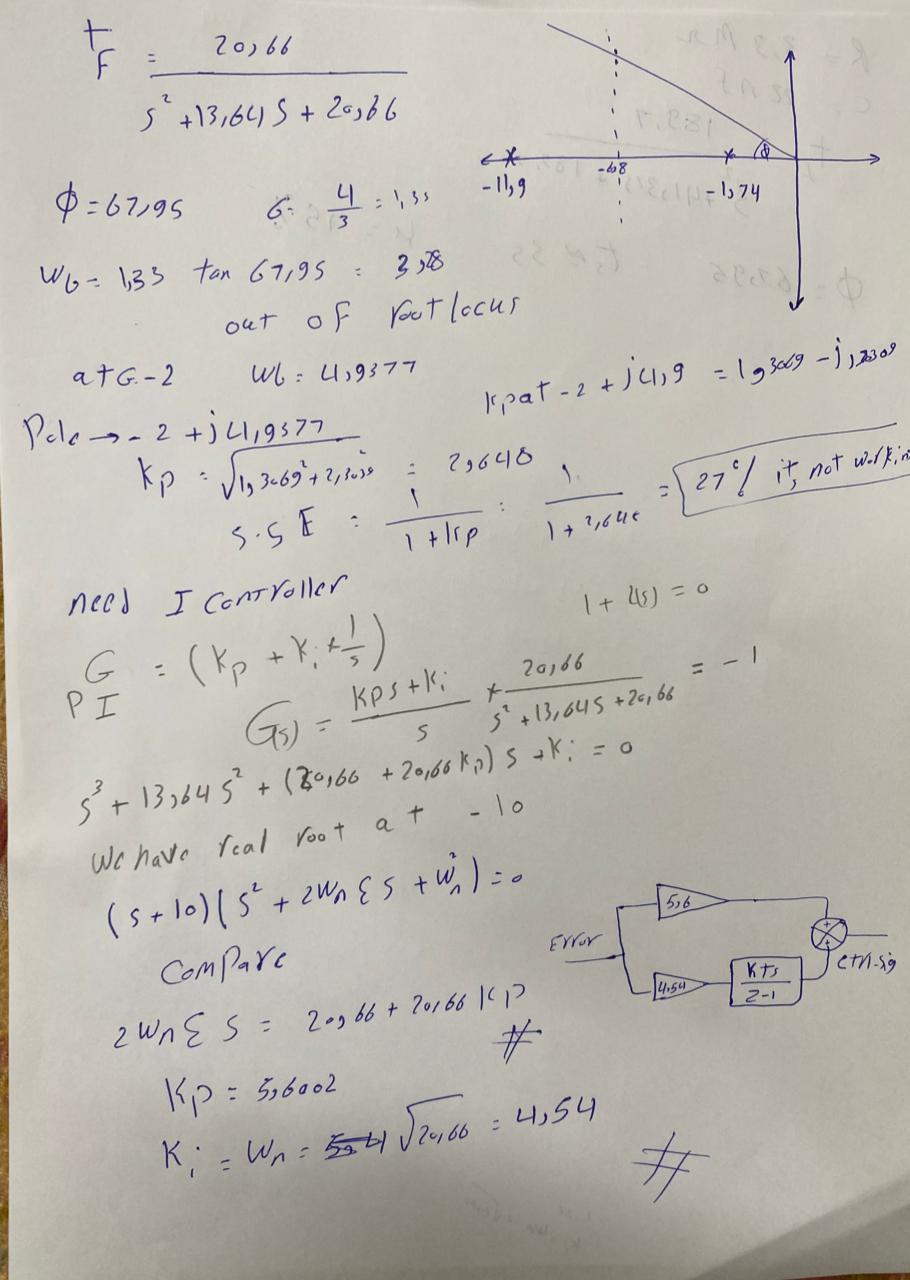 TF = 20,66 / s² + 13,64 s + 20,66
-11,9 -6,8 -1,74 ϕ
ϕ = 67,95 σ = 4/3 = 1,33
Wb = 1,33 tan 67,95 = 3,28
out of root locus
at σ = -2 Wb = 4,9377
Kp at -2 + j4,9 = 1,3069 - j2,3039
Pole → -2 + j4,9377
Kp = √1,3069² + 2,3039² = 2,648
S.S E = 1 / 1 + Kp = 1 / 1 + 2,648 = 27% it's not workin
need I controller
1 + L(s) = 0
G PI = (Kp + Ki * 1/s)
G(s) = Kps + Ki / s * 20,66 / s² + 13,64s + 20,66 = -1
s³ + 13,64 s² + (20,66 + 20,66 Kp) s + Ki = 0
We have real root at -10
(s + 10)(s² + 2Wn ξ s + Wn²) = 0
Compare
Error 5,6 4,54 KTs / Z-1 + + ctrl-sig
2Wn ξ s = 20,66 + 20,66 Kp
#
Kp = 5,6002
Ki = Wn = √20,66 = 4,54
#